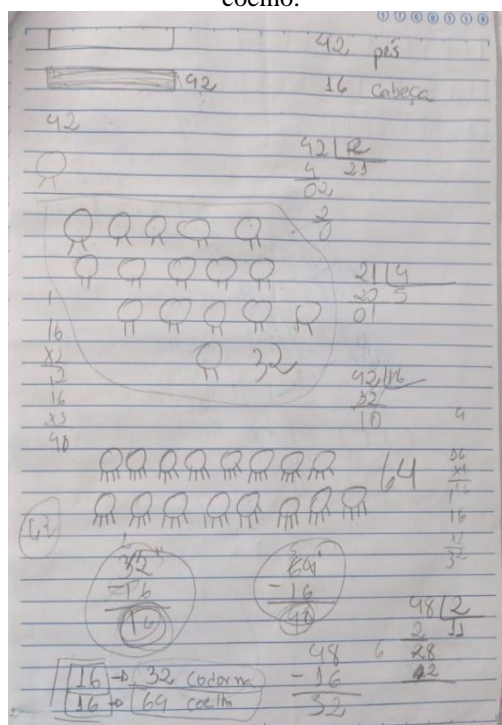 coelho.
42 pés
92
16 cabeça
42
42 | 2
4 21
02
2
0
32
21 | 4
20 5
01
1
16
x2
12
16
x3
48
42 | 16
32
10
64
4
16
12
32
32
-16
16
64
-16
48
48 | 2
2
28
48
-16
32
6
16 → 32 codorna
16 → 64 coelh